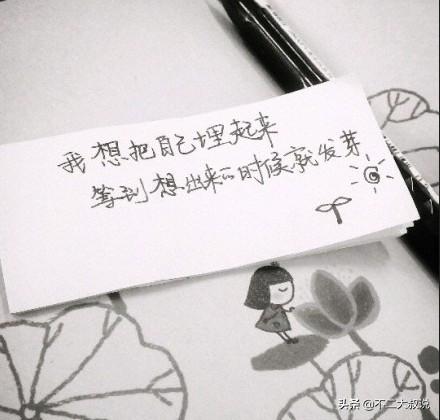 我想把自己埋起来
等到想出来的时候就发芽
头条 @不二大叔说